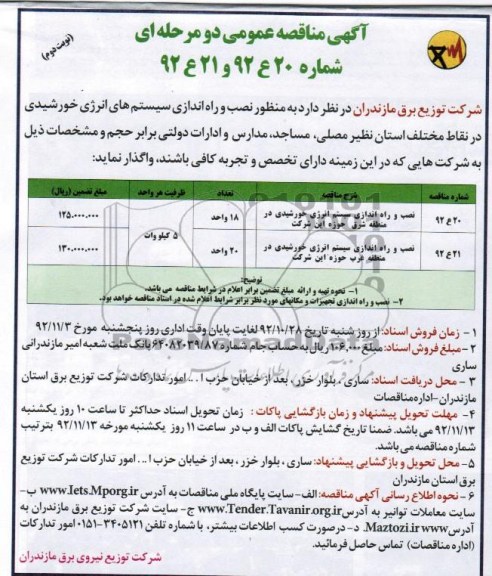 آگهی مناقصه عمومی دو مرحله ای
(نوبت دوم)
شماره ۲۰ ع ۹۲ و ۲۱ ع ۹۲
شرکت توزیع برق مازندران در نظر دارد به منظور نصب و راه اندازی سیستم های انرژی خورشیدی
در نقاط مختلف استان نظیر مصلی، مساجد، مدارس و ادارات دولتی برابر حجم و مشخصات ذیل
به شرکت هایی که در این زمینه دارای تخصص و تجربه کافی باشند، واگذار نماید:
شماره مناقصه شرح مناقصه تعداد ظرفیت هر واحد مبلغ تضمین (ریال)
۲۰ع۹۲ نصب و راه اندازی سیستم انرژی خورشیدی در منطقه شرق حوزه این شرکت ۱۸ واحد ۵ کیلو وات ۱۲۵.۰۰۰.۰۰۰
۲۱ع۹۲ نصب و راه اندازی سیستم انرژی خورشیدی در منطقه غرب حوزه این شرکت ۲۰ واحد ۱۳۰.۰۰۰.۰۰۰
توضیح:
۱- نحوه تهیه و ارائه مبلغ تضمین برابر اعلام در شرایط مناقصه می باشد.
۲- نصب و راه اندازی تجهیزات و مکانهای مورد نظر برابر شرایط اعلام شده در اسناد مناقصه خواهد بود.
۱- زمان فروش اسناد: از روز شنبه تاریخ ۹۲/۱۰/۲۸ لغایت پایان وقت اداری روز پنجشنبه مورخ ۹۲/۱۱/۳
۲- مبلغ فروش اسناد: مبلغ ۱۰۶,۰۰۰ ریال به حساب جام شماره ۶۴۰۸۲۰۳۹/۸۷ بانک ملت شعبه امیر مازندرانی
ساری
۳- محل دریافت اسناد: ساری، بلوار خزر، بعد از خیابان حزب ا... امور تدارکات شرکت توزیع برق استان
مازندران-اداره مناقصات
۴- مهلت تحویل پیشنهاد و زمان بازگشایی پاکات : زمان تحویل اسناد حداکثر تا ساعت ۱۰ روز یکشنبه
۹۲/۱۱/۱۳ می باشد. ضمنا تاریخ گشایش پاکات الف و ب در ساعت ۱۱ روز یکشنبه مورخه ۹۲/۱۱/۱۳ بترتیب
شماره مناقصه می باشد.
۵- محل تحویل و بازگشایی پیشنهاد: ساری، بلوار خزر، بعد از خیابان حزب ا... امور تدارکات شرکت توزیع
برق استان مازندران
۶- نحوه اطلاع رسانی آگهی مناقصه: الف- سایت پایگاه ملی مناقصات به آدرس www.Iets.Mporg.ir ب-
سایت معاملات توانیر به آدرس www.Tender.Tavanir.org.ir ج- سایت شرکت توزیع برق مازندران به
آدرس www.Maztozi.ir د- درصورت کسب اطلاعات بیشتر، با شماره تلفن ۳۴۰۵۱۲۱-۰۱۵۱ امور تدارکات
(اداره مناقصات) تماس حاصل فرمائید.
شرکت توزیع نیروی برق مازندران